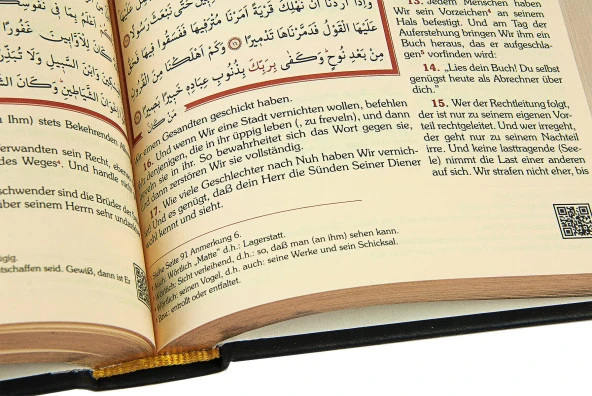 بِمَا فِي نُفُوسِ
كَانَ لِلْأَوَّابِينَ غَفُورًا
وَابْنَ السَّبِيلِ وَلَا تُبَذِّرْ
إِخْوَانَ الشَّيَاطِينِ وَكَانَ
Ihm) stets Bekehrenden All
erwandten sein Recht, ebens
des Weges⁴. Und handle nich
schwender sind die Brüder der
über seinem Herrn sehr undan
gig.
tschaffen seid. Gewiß, dann ist Er
حَتَّى نَبْعَثَ رَسُولًا
وَإِذَا أَرَدْنَا أَنْ نُهْلِكَ قَرْيَةً أَمَرْنَا مُتْرَفِيهَا فَفَسَقُوا فِيهَا فَحَقَّ
عَلَيْهَا الْقَوْلُ فَدَمَّرْنَاهَا تَدْمِيرًا ﴿١٦﴾ وَكَمْ أَهْلَكْنَا مِنَ الْقُرُونِ
مِنْ بَعْدِ نُوحٍ وَكَفَى بِرَبِّكَ بِذُنُوبِ عِبَادِهِ خَبِيرًا بَصِيرًا
مَنْ كَانَ
einen Gesandten geschickt haben.
16. Und wenn Wir eine Stadt vernichten wollen, befehlen
denjenigen, die in ihr üppig leben (, zu freveln), und dann
freveln sie in ihr. So bewahrheitet sich das Wort gegen sie,
und dann zerstören Wir sie vollständig.
17. Wie viele Geschlechter nach Nuh haben Wir vernich-
tet! Und es genügt, daß dein Herr die Sünden Seiner Diener
wohl kennt und sieht.
Siehe Seite 91 Anmerkung 6.
Auch: Wörtlich „Matte“ d.h.: Lagerstatt.
Wörtlich; Sicht verleihend, d.h.: so, daß man (an ihm) sehen kann.
Wörtlich: seinen Vogel, d.h. auch: seine Werke und sein Schicksal.
entrollt oder entfaltet.
13. Jedem Menschen haben
Wir sein Vorzeichen⁴ an seinem
Hals befestigt. Und am Tag der
Auferstehung bringen Wir ihm ein
Buch heraus, das er aufgeschla-
gen⁵ vorfinden wird:
14. „Lies dein Buch! Du selbst
genügst heute als Abrechner über
dich.“
15. Wer der Rechtleitung folgt,
der ist nur zu seinem eigenen Vor-
teil rechtgeleitet. Und wer irregeht,
der geht nur zu seinem Nachteil
irre. Und keine lasttragende (See-
le) nimmt die Last einer anderen
auf sich. Wir strafen nicht eher, bis